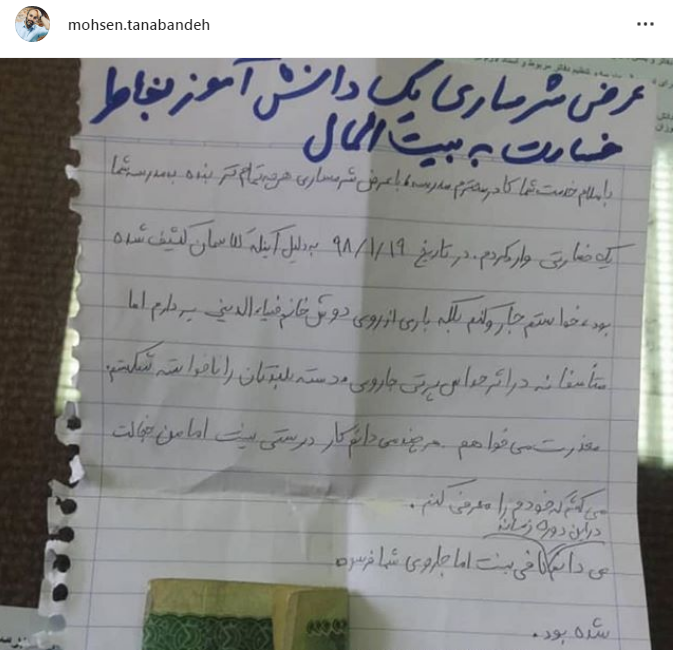 mohsen.tanabandeh
عرض شرمساری یک دانش آموز بخاطر
خسارت به بیت المال
باسلام خدمت شما کادر محترم مدرسه، با عرض شرمساری هرچه تمام تر بنده به مدرسه شما
یک خسارتی وارد کردم. در تاریخ ۹۸/۱/۱۹ به دلیل آینکه کلاسمان کثیف شده
بود، خواستم جارو کنم بلکه باری از روی دوش خانم ضیاءالدینی بردارم اما
متأسفانه در اثر حواس پرتی جاروی دسته بلندتان را ناخواسته شکستم.
معذرت می خواهم. هرچند می دانم کار درستی نیست اما من خجالت
می کشم که خودم را معرفی کنم.
در این دوره زمانه
می دانم کافی نیست اما جاروی شما فرسوده
شده بود.